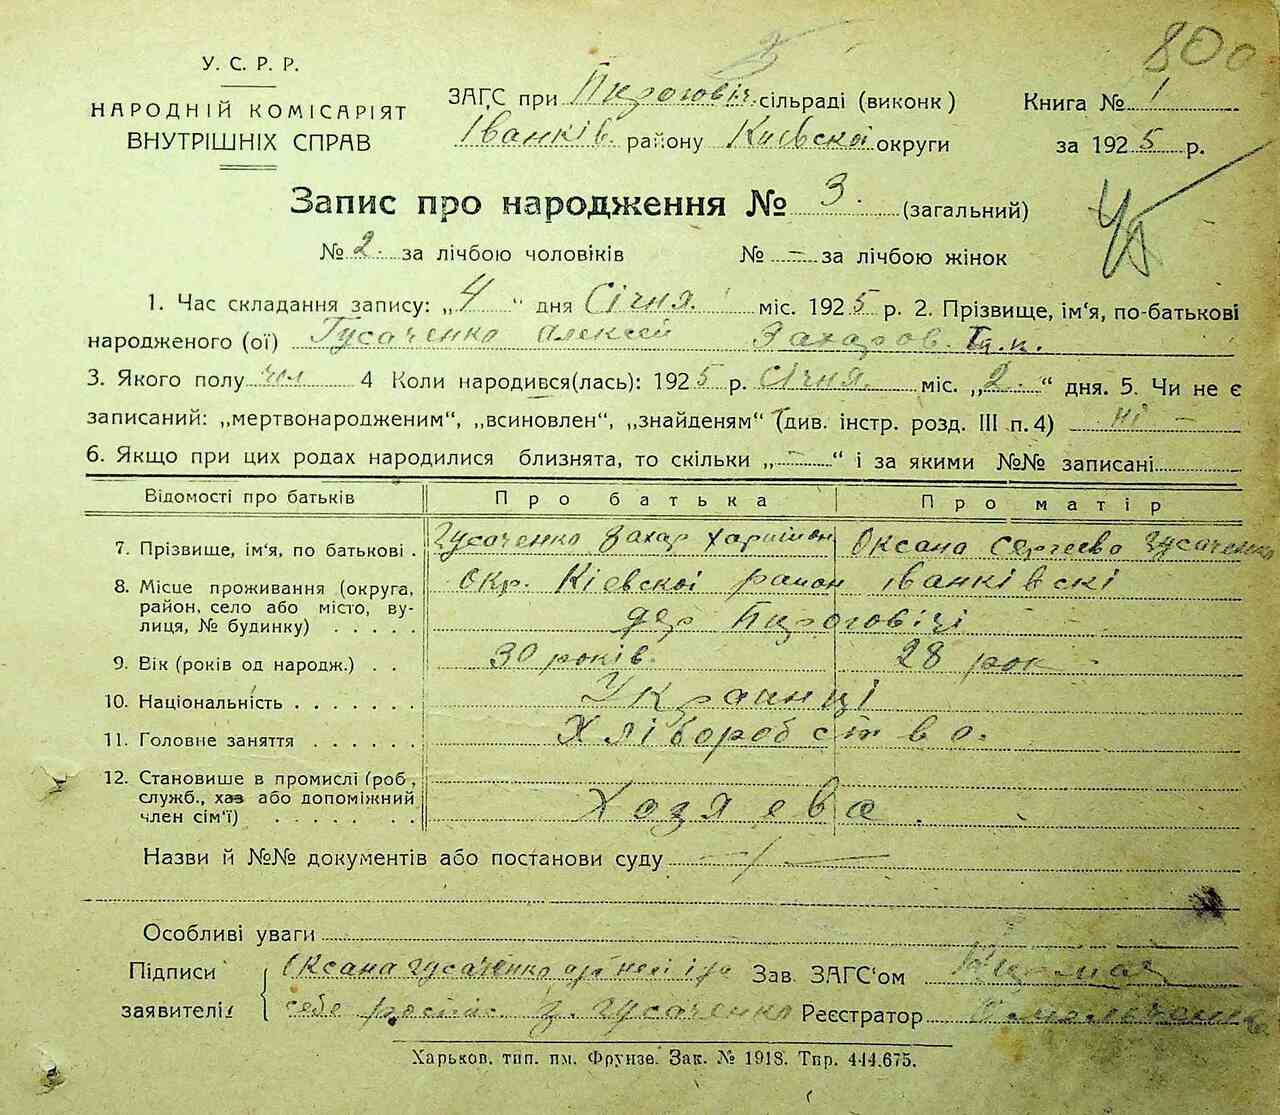 80
У. С. Р. Р.
НАРОДНІЙ КОМІСАРІЯТ
ВНУТРІШНІХ СПРАВ
ЗАГС при Пироговіч. сільраді (виконк)
Іванків. району Киевскої округи
Книга № 1
за 1925 р.
Запис про народження № 3. (загальний)
№ 2. за лічбою чоловіків № – за лічбою жінок
1. Час складання запису: „4“ дня Січня міс. 1925 р. 2. Прізвище, ім‘я, по-батькові
народженого (ої) Гусаченко Алексей Захаров.
3. Якого полу чол 4 Коли народився(лась): 1925 р. Січня. міс. „2.“ дня. 5. Чи не є
записаний: „мертвонародженим“, „всиновлен“, „знайденям“ (див. інстр. розд. III п. 4) ні –
6. Якщо при цих родах народилися близнята, то скільки „–“ і за якими №№ записані
Відомості про батьків Про батька Про матір
7. Прізвище, ім‘я, по батькові . Гусаченко Захар Харитон Оксана Сергеева Гусаченко
8. Місце проживання (округа, район, село або місто, вулиця, № будинку) . . . . . Окр. Кіевскої район іванківскі
дер Пироговіці
9. Вік (років од народж.) . . 30 років. 28 рок
10. Національність . . . . . . . Украинці
11. Головне заняття . . . . . . Хліборобство.
12. Становище в промислі (роб., служб., хаз або допоміжний член сім‘ї) . . . . . . . Хазяева.
Назви й №№ документів або постанови суду
Особливі уваги
Підписи Оксана Гусаченко Зав. ЗАГС‘ом
заявителів себе роспис. З. Гусаченко Реєстратор
Харьков. тип. им. Фрунзе. Зак. № 1918. Тпр. 444.675.